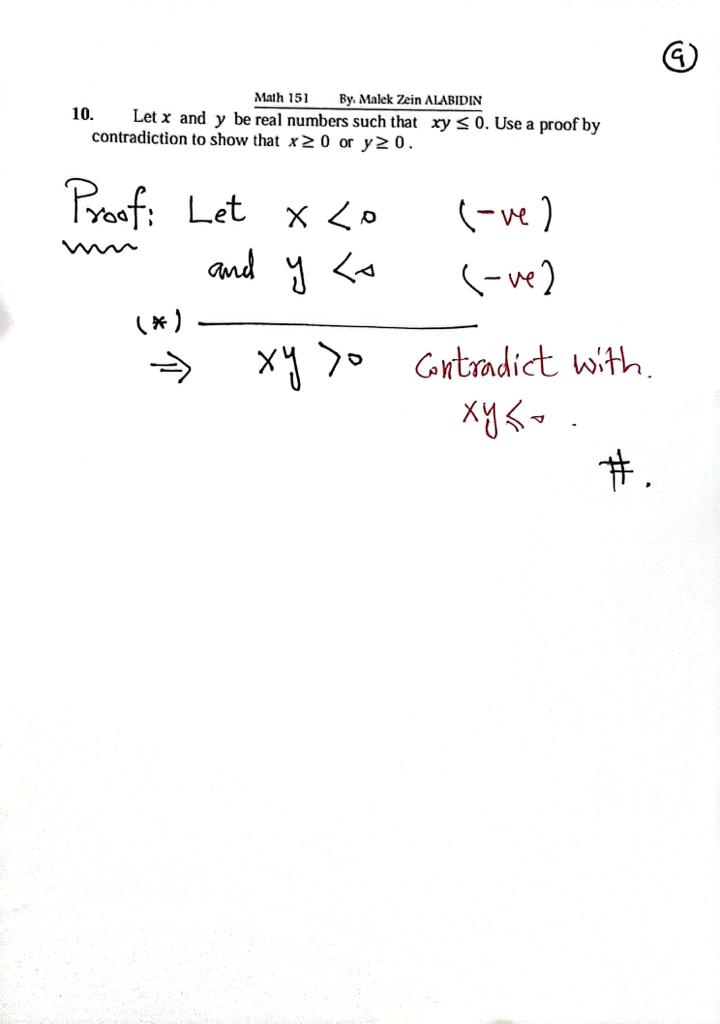 9
Math 151 By. Malek Zein ALABIDIN
10. Let x and y be real numbers such that xy ≤ 0. Use a proof by
contradiction to show that x ≥ 0 or y ≥ 0.
Proof: Let x < 0 (-ve)
and y < 0 (-ve)
(*)
⇒ xy > 0 Contradict with.
xy ≤ 0 .
#.